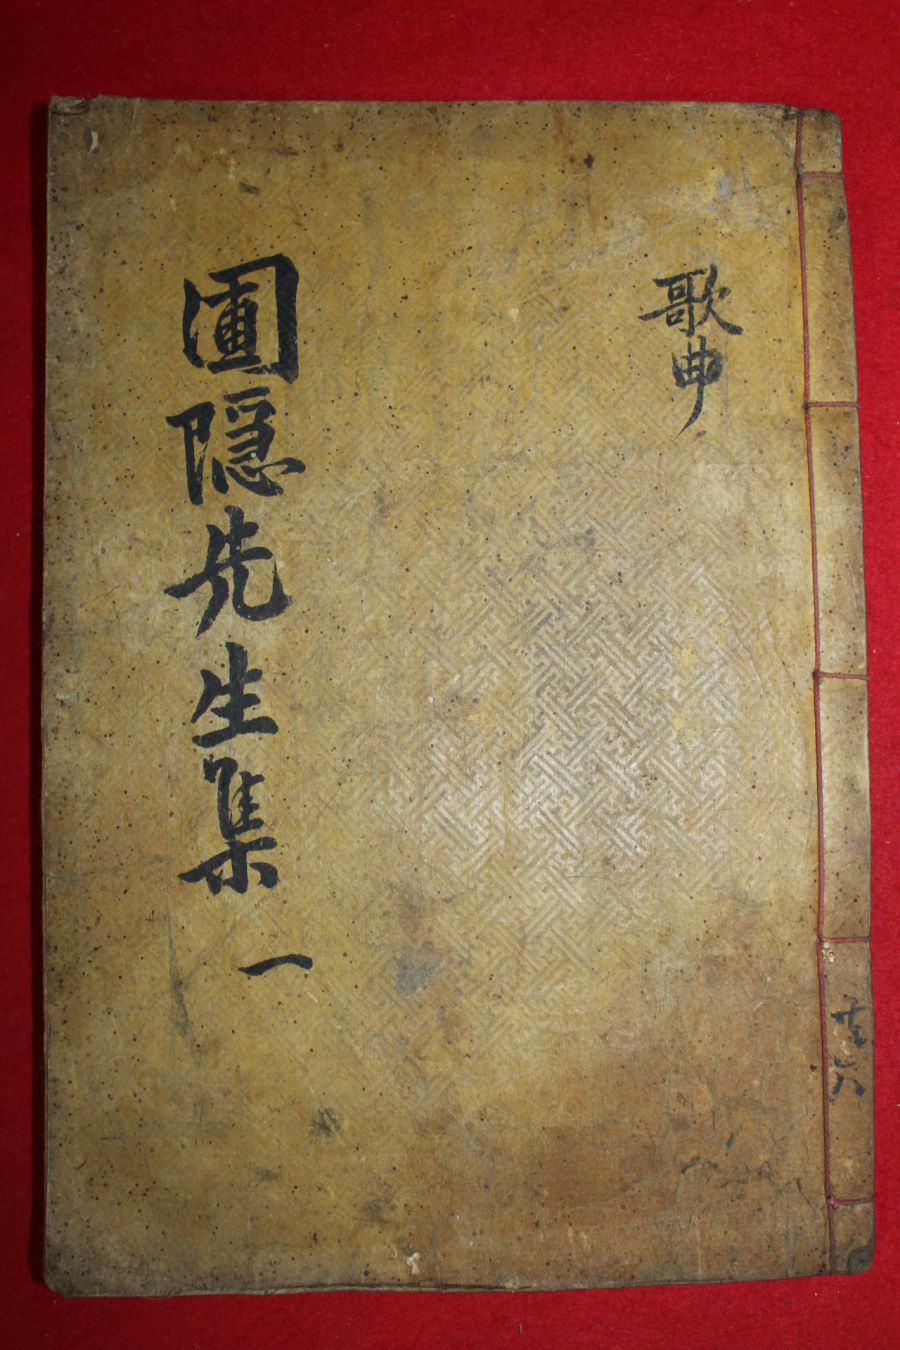 歌曲
圃隱先生集 一
共六